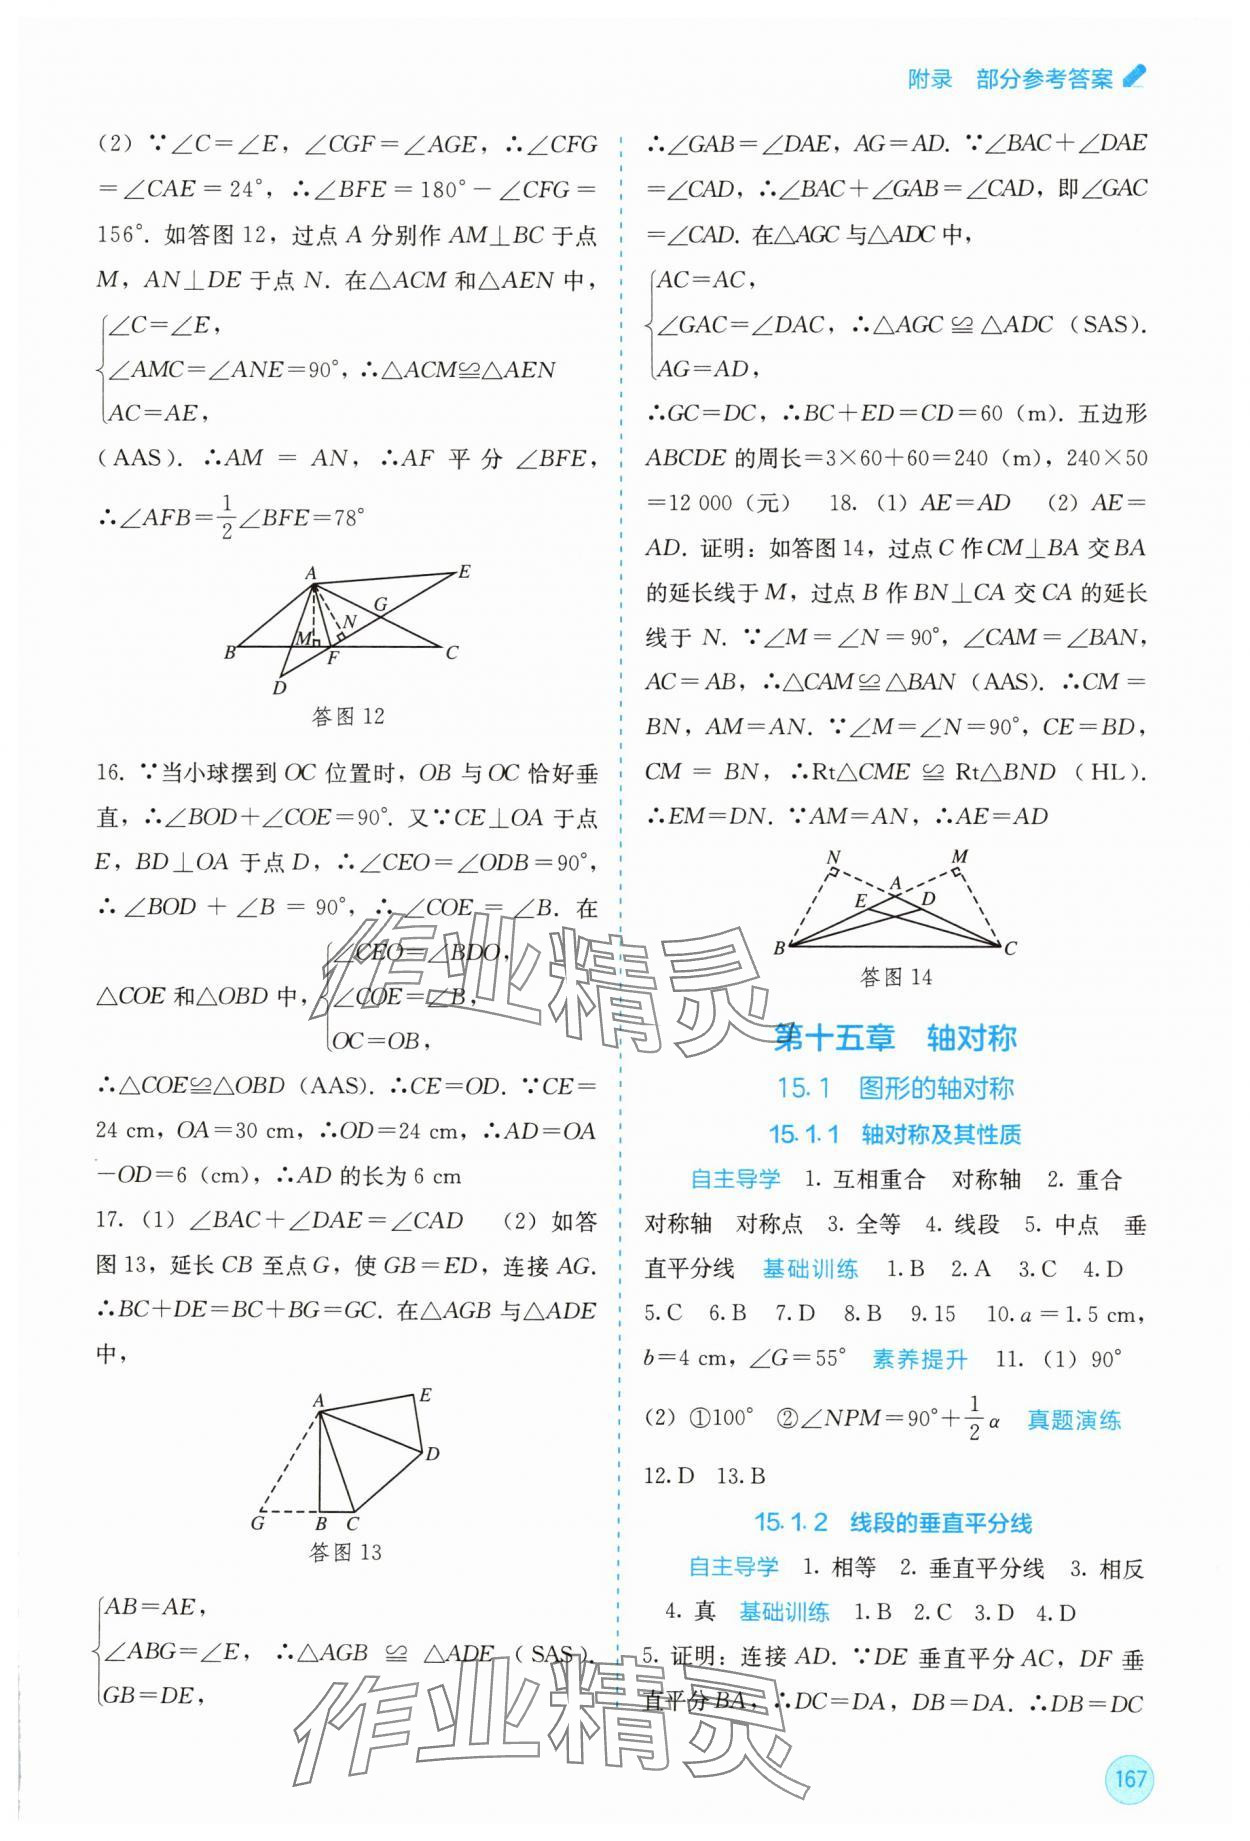 附录 部分参考答案
(2) ∵∠C=∠E, ∠CGF=∠AGE, ∴∠CFG
=∠CAE=24°, ∴∠BFE=180°-∠CFG=
156°. 如答图 12, 过点 A 分别作 AM⊥BC 于点
M, AN⊥DE 于点 N. 在△ACM 和△AEN 中,
∠C=∠E,
∠AMC=∠ANE=90°, ∴△ACM≌△AEN
AC=AE,
(AAS). ∴AM = AN, ∴AF 平分 ∠BFE,
∴∠AFB=1/2∠BFE=78°
A
E
G
N
M
B
F
C
D
答图 12
16. ∵当小球摆到 OC 位置时, OB 与 OC 恰好垂
直, ∴∠BOD+∠COE=90°. 又∵CE⊥OA 于点
E, BD⊥OA 于点 D, ∴∠CEO=∠ODB=90°,
∴∠BOD+∠B=90°, ∴∠COE=∠B. 在
△COE 和△OBD 中,
∠CEO=∠BDO,
∠COE=∠B,
OC=OB,
∴△COE≌△OBD (AAS). ∴CE=OD. ∵CE=
24 cm, OA=30 cm, ∴OD=24 cm, ∴AD=OA
-OD=6 (cm), ∴AD 的长为 6 cm
17. (1) ∠BAC+∠DAE=∠CAD (2) 如答
图 13, 延长 CB 至点 G, 使 GB=ED, 连接 AG.
∴BC+DE=BC+BG=GC. 在△AGB 与△ADE
中,
A
E
D
G
B
C
答图 13
AB=AE,
∠ABG=∠E, ∴△AGB ≌ △ADE (SAS).
GB=DE,
∴∠GAB=∠DAE, AG=AD. ∵∠BAC+∠DAE
=∠CAD, ∴∠BAC+∠GAB=∠CAD, 即∠GAC
=∠CAD. 在△AGC 与△ADC 中,
AC=AC,
∠GAC=∠DAC, ∴△AGC ≌ △ADC (SAS).
AG=AD,
∴GC=DC, ∴BC+ED=CD=60 (m). 五边形
ABCDE 的周长=3×60+60=240 (m), 240×50
=12 000 (元) 18. (1) AE=AD (2) AE=
AD. 证明: 如答图 14, 过点 C 作 CM⊥BA 交 BA
的延长线于 M, 过点 B 作 BN⊥CA 交 CA 的延长
线于 N. ∵∠M=∠N=90°, ∠CAM=∠BAN,
AC=AB, ∴△CAM≌△BAN (AAS). ∴CM=
BN, AM=AN. ∵∠M=∠N=90°, CE=BD,
CM = BN, ∴Rt△CME ≌ Rt△BND (HL).
∴EM=DN. ∵AM=AN, ∴AE=AD
N
M
A
E
D
B
C
答图 14
第十五章 轴对称
15.1 图形的轴对称
15.1.1 轴对称及其性质
自主导学 1. 互相重合 对称轴 2. 重合
对称轴 对称点 3. 全等 4. 线段 5. 中点 垂
直平分线 基础训练 1. B 2. A 3. C 4. D
5. C 6. B 7. D 8. B 9. 15 10. a=1.5 cm,
b=4 cm, ∠G=55° 素养提升 11. (1) 90°
(2) ①100° ②∠NPM=90°+1/2α 真题演练
12. D 13. B
15.1.2 线段的垂直平分线
自主导学 1. 相等 2. 垂直平分线 3. 相反
4. 真 基础训练 1. B 2. C 3. D 4. D
5. 证明: 连接 AD. ∵DE 垂直平分 AC, DF 垂
直平分 BA, ∴DC=DA, DB=DA. ∴DB=DC
作业精灵
作业精灵
167